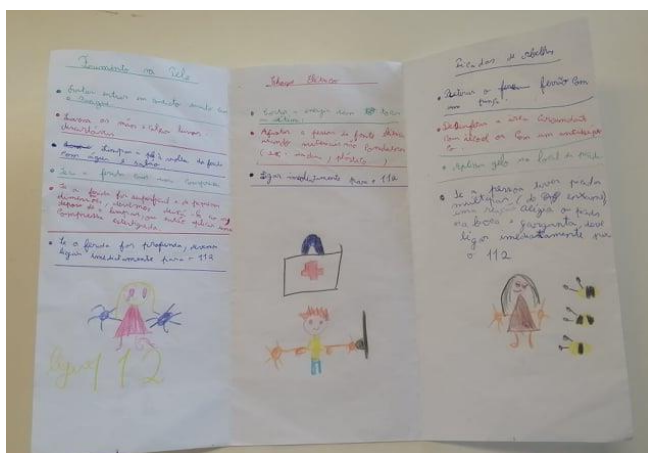 Ferimento na Pele
• Evitar entrar em contacto
o sangue
• Lavar as mãos e calçar luvas
descartáveis
• Limpar a pele à volta da ferida
com água e sabão
• a ferida com uma compressa
• Se a ferida for superficial e de pequena
dimensão, devemos deixá-la ao ar
depois de a limpar, ou então aplicar uma
compressa esterilizada.
• Se a ferida for profunda, devemos
ligar imediatamente para o 112
ligar 112
Choque Elétrico
• a energia sem tocar
na vítima
• Afastar a pessoa da fonte elétrica
usando materiais não condutores
(ex: madeira, plástico)
• Ligar imediatamente para o 112
Picadas de Abelha
• Retirar o ferrão com
uma pinça
• Desinfetar a área circundante
com álcool ou com um
• Aplicar gelo no local da picada
• Se a pessoa tiver picadas
múltiplas (
uma reação alérgica ou picada
na boca e garganta, deve
ligar imediatamente para
o 112